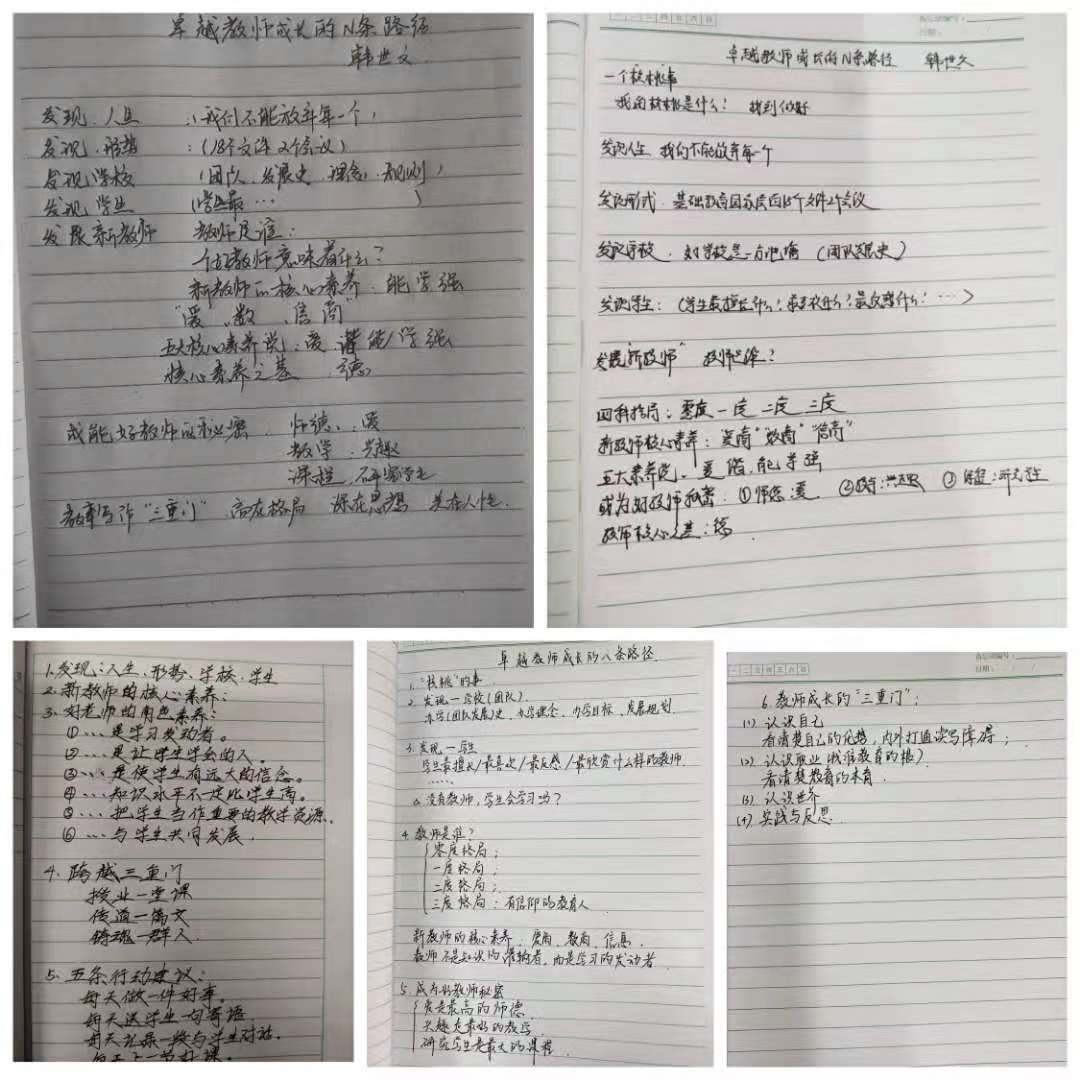 卓越教师成长的N条路径
韩世文
发现 人生 :(我们不能放弃每一个)
发现 形势 :(18个文件 2个会议)
发现学校 (团队、发展史、理念、规划)
发现学生 (学生最…)
发展新教师 教师是谁:
一位教师意味着什么?
新教师的核心素养 能 学 强
“爱”、教、信商”
五大核心素养说:爱、 能 学 强
核心素养之基 德
成 好教师的秘密: 师德、爱
教学:兴趣
课程:研究学生
教育写作“三重门” 高在格局 深在思想 美在人性.
卓越教师成长的N条路径 韩世文
一个核桃事
我的核桃是什么? 找到 砸
发现人生 我们不能放弃每一个
发现形式:基础教育国家层面18个文件2个会议
发现学校:对学校 一方 (团队发展史)
发现学生:(学生最擅长什么?最喜欢什么?最反感什么?…)
发展“新教师” 教师是谁?
四种格局:零度 一度 二度 三度
新教师核心素养:爱商”“教商”“信商”
五大素养说:爱 能 学 强
成为好教师秘密:①师德:爱 ②教学:兴趣 ③课程:研究学生
教师核心之基:德
1.发现:人生、形势、学校、学生
2.新教师的核心素养:
3.好老师的角色素养:
①…是学习发动者。
②…是让学生学会的人。
③…是使学生有远大的信念。
④…知识水平不一定比学生高。
⑤…把学生当作重要的教学资源.
⑥…与学生共同发展.
4.跨越三重门
授业一堂课
传道一篇文
铸魂一群人
5.五条行动建议:
每天做一件好事。
每天送学生一句寄语.
每天 录一段与学生对话。
每天上一节好课。
卓越教师成长的八条路径
1.“核桃”的事
2.发现一学校(团队)
办学(团队发展)史、办学理念、办学目标、发展规划.
3.发现一学生
学生最擅长/最喜欢/最反感/最欣赏什么样的教师
……
a.没有教师,学生会学习吗?
4.教师是谁?
零度格局;
一度格局;
二度格局;
三度格局:有信仰的教育人
新教师的核心素养:爱商、教商、信息.
教师不是知识的灌输者,而是学习的发动者.
5.成为好教师秘密
爱是最高的师德
兴趣是最好的教学
研究学生是最大的课程
6.教师成长的“三重门”:
(1) 认识自己
看清楚自己的优势,内外打通读写障碍;
(2) 认识职业(找准教育的根)
看清楚教育的本质
(3) 认识世界
(4) 实践与反思.